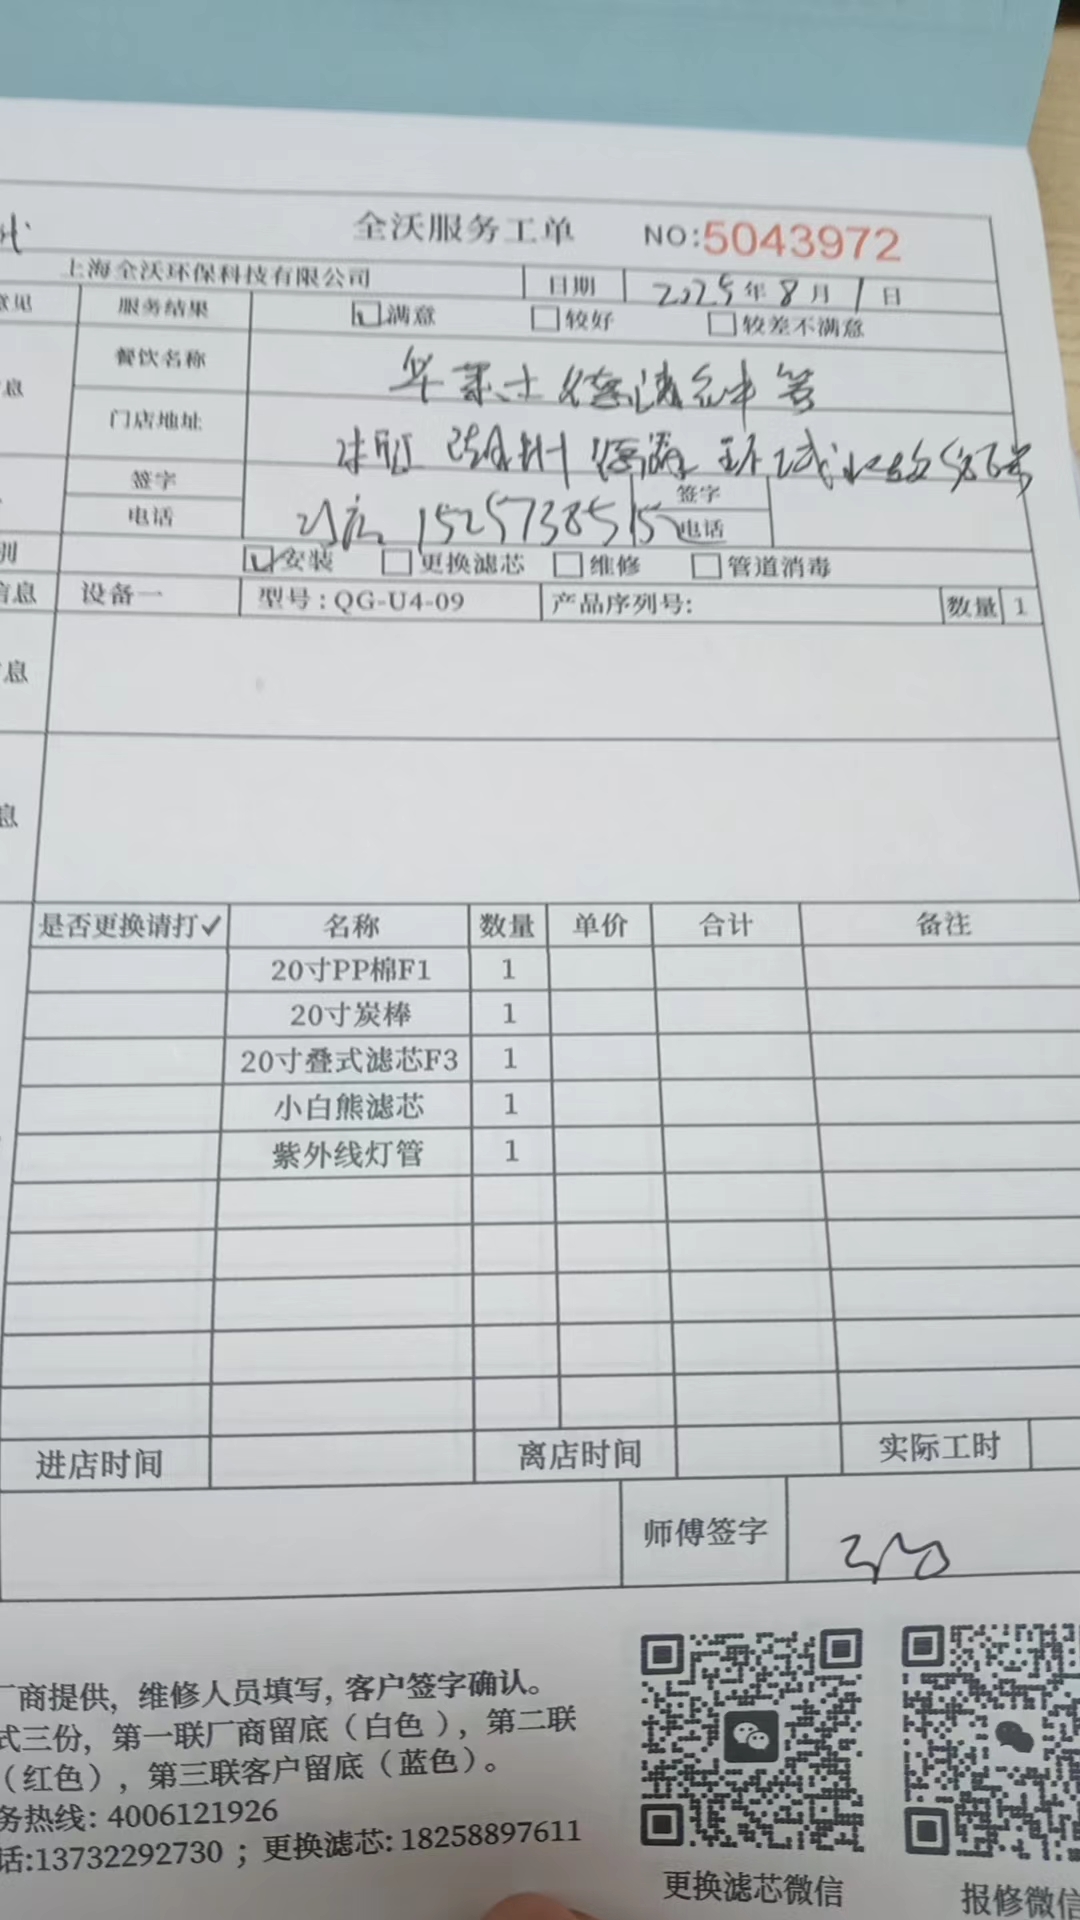 全沃服务工单 NO:5043972
上海全沃环保科技有限公司 日期 2025年8月1日
意见 服务结果 ☑满意 □较好 □较差不满意
餐饮名称 华莱士德清
息 门店地址 湖州德清
签字 签字
电话 15257385152 电话
别 ☑安装 □更换滤芯 □维修 □管道消毒
信息 设备一 型号:QG-U4-09 产品序列号: 数量 1
息
息
是否更换请打✓ 名称 数量 单价 合计 备注
20寸PP棉F1 1
20寸炭棒 1
20寸叠式滤芯F3 1
小白熊滤芯 1
紫外线灯管 1
进店时间 离店时间 实际工时
师傅签字
厂商提供，维修人员填写，客户签字确认。
式三份，第一联厂商留底（白色），第二联
（红色），第三联客户留底（蓝色）。
务热线: 4006121926
话:13732292730 ；更换滤芯: 18258897611
更换滤芯微信 报修微信